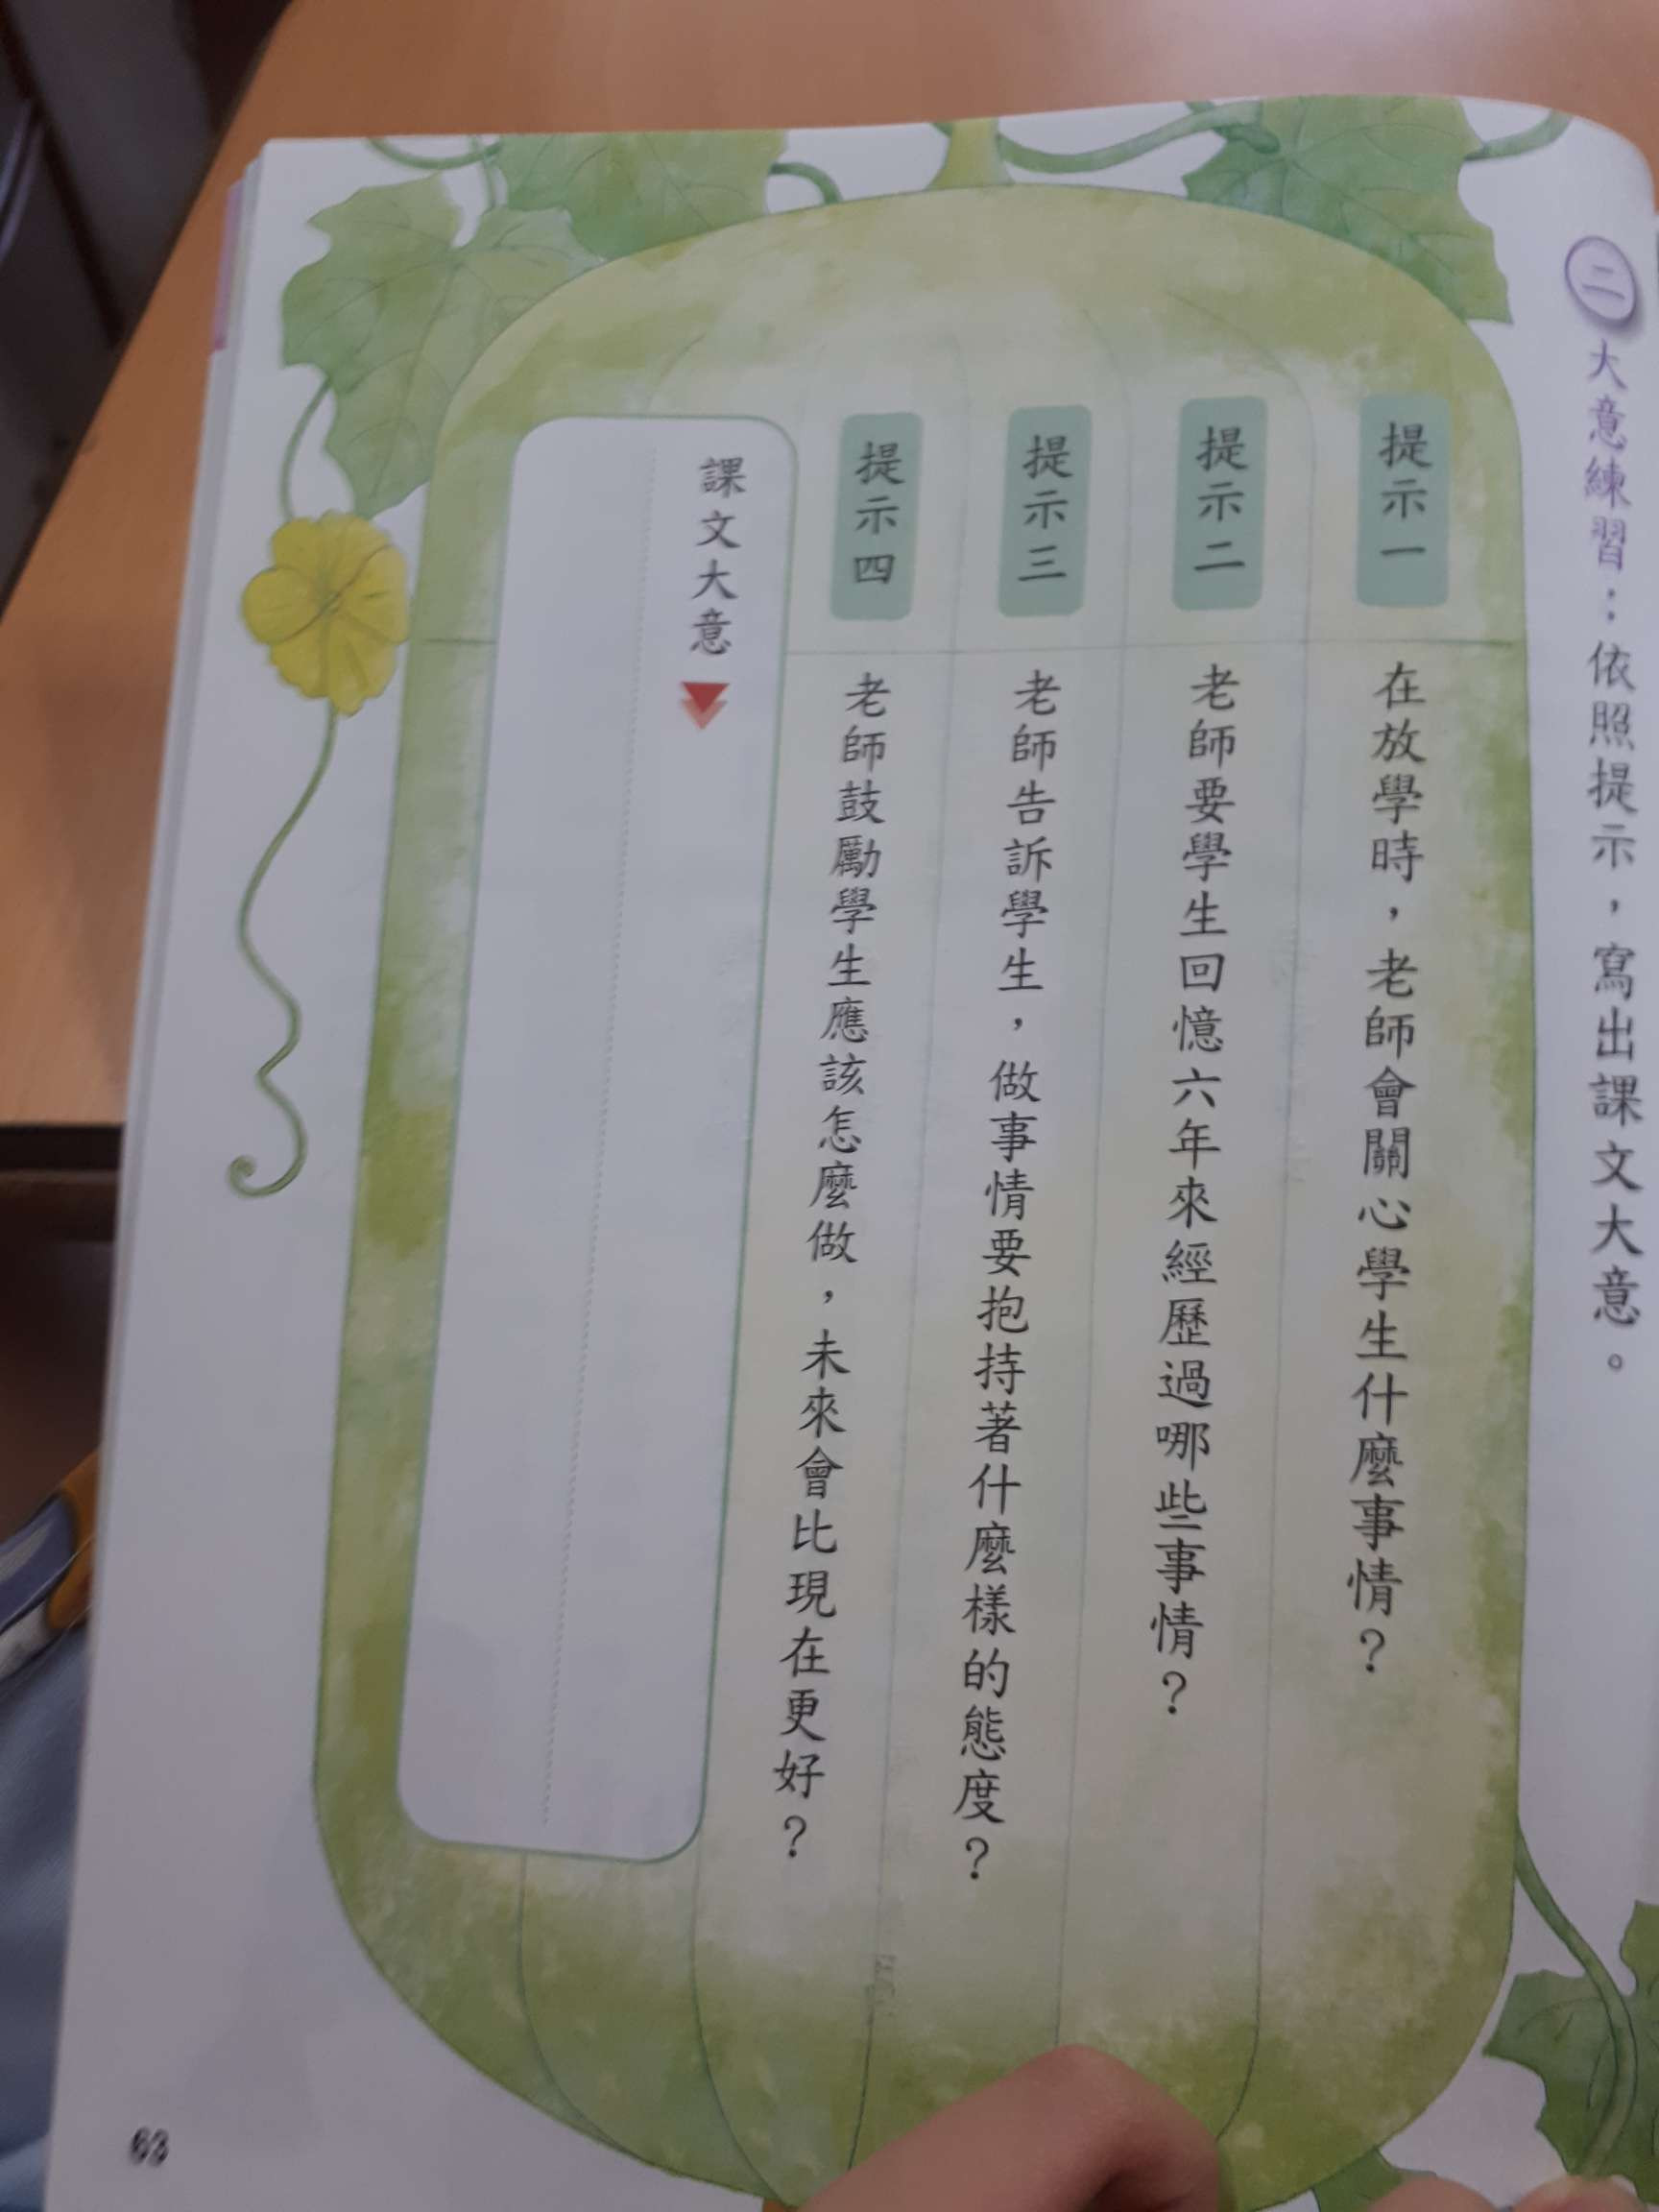 二 大意練習：依照提示，寫出課文大意。
提示一
在放學時，老師會關心學生什麼事情？
提示二
老師要學生回憶六年來經歷過哪些事情？
提示三
老師告訴學生，做事情要抱持著什麼樣的態度？
提示四
老師鼓勵學生應該怎麼做，未來會比現在更好？
課文大意
63